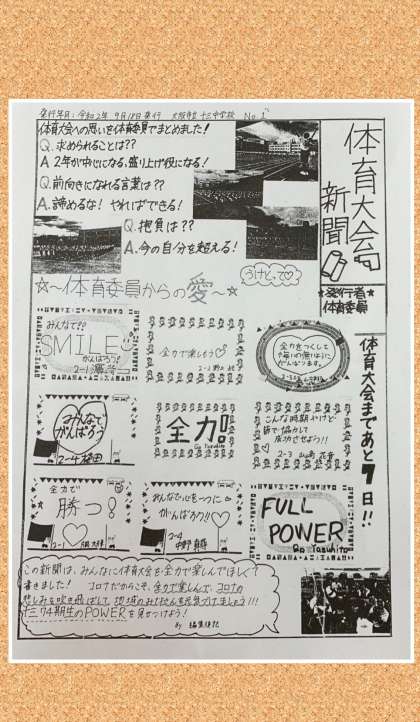 発行年月：令和2年 9月18日発行 大阪市立 十三中学校 No.1
体育大会新聞
★発行者★
体育委員
体育大会への思いを体育委員でまとめました！
Q. 求められることは??
A. 2年が中心になる、盛り上げ役になる！
Q. 前向きになれる言葉は??
A. 諦めるな！ やればできる！
Q. 抱負は??
A. 今の自分を超える！
☆〜体育委員からの愛〜☆
うけとって♡
体育大会まであと7日!!
みんなで!!
SMILE
がんばろう!
2-1
全力で楽しもう♡
全力をつくして
悔いの無いように
がんばります。
みんなで
がんばろう
2-4
全力!
こんな時期やけど
皆で協力して
成功させよう!!
2-3 山崎
全力で
勝つ!
2-1
みんなで心を一つに
がんばろう!!♡
2-4
FULL
POWER
この新聞は、みんなに体育大会を全力で楽しんでほしくて
書きました！ コロナだからこそ、全力で楽しんで、コロナの
悲しみを吹き飛ばして、地域のみなさんを元気づけましょう!!!
十三74期生のPOWERを見せつけよう！
By 編集後記